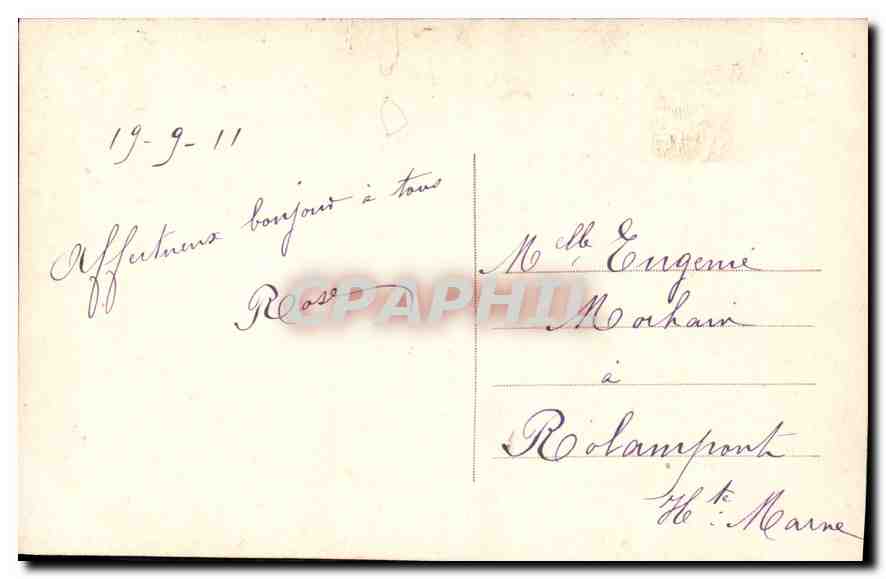 19-9-11
Affectueux bonjour à tous
Rose
CPAPHIL
Melle Eugenie
Morhain
à
Rolampont
Hte Marne